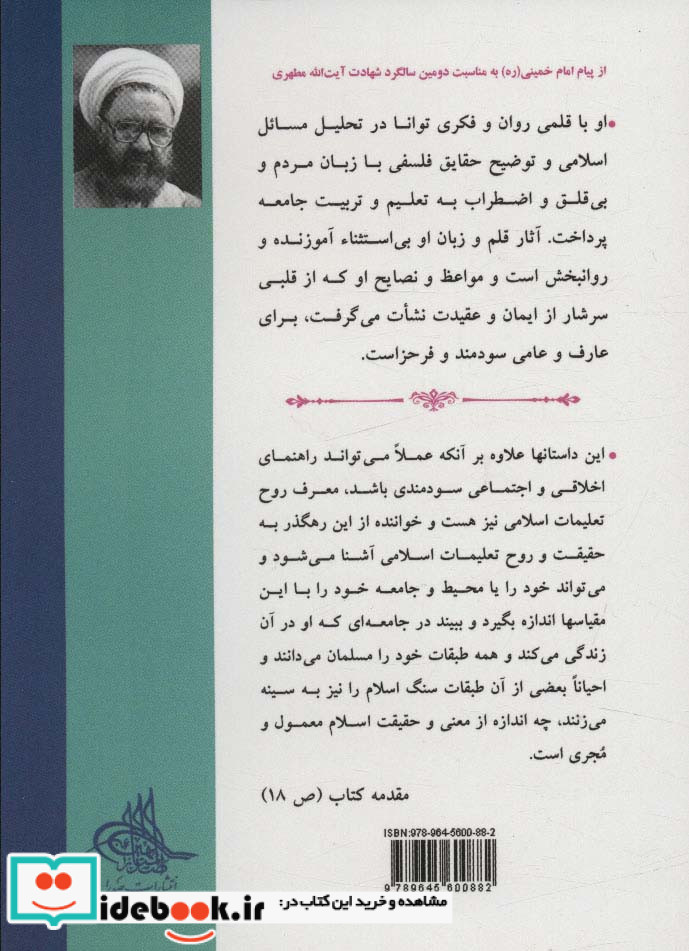 از پیام امام خمینی(ره) به مناسبت دومین سالگرد شهادت آیت‌الله مطهری
• او با قلمی روان و فکری توانا در تحلیل مسائل
اسلامی و توضیح حقایق فلسفی با زبان مردم و
بی‌قلق و اضطراب به تعلیم و تربیت جامعه
پرداخت. آثار قلم و زبان او بی‌استثناء آموزنده و
روانبخش است و مواعظ و نصایح او که از قلبی
سرشار از ایمان و عقیدت نشأت می‌گرفت، برای
عارف و عامی سودمند و فرحزاست.
• این داستانها علاوه بر آنکه عملاً می‌تواند راهنمای
اخلاقی و اجتماعی سودمندی باشد، معرف روح
تعلیمات اسلامی نیز هست و خواننده از این رهگذر به
حقیقت و روح تعلیمات اسلامی آشنا می‌شود و
می‌تواند خود را یا محیط و جامعه خود را با این
مقیاسها اندازه بگیرد و ببیند در جامعه‌ای که او در آن
زندگی می‌کند و همه طبقات خود را مسلمان می‌دانند و
احیاناً بعضی از آن طبقات سنگ اسلام را نیز به سینه
می‌زنند، چه اندازه از معنی و حقیقت اسلام معمول و
مُجری است.
مقدمه کتاب (ص ۱۸)
ISBN:978-964-5600-88-2
9 789645 600882
انتشارات صدرا
مشاهده و خرید این کتاب در:
idebook.ir